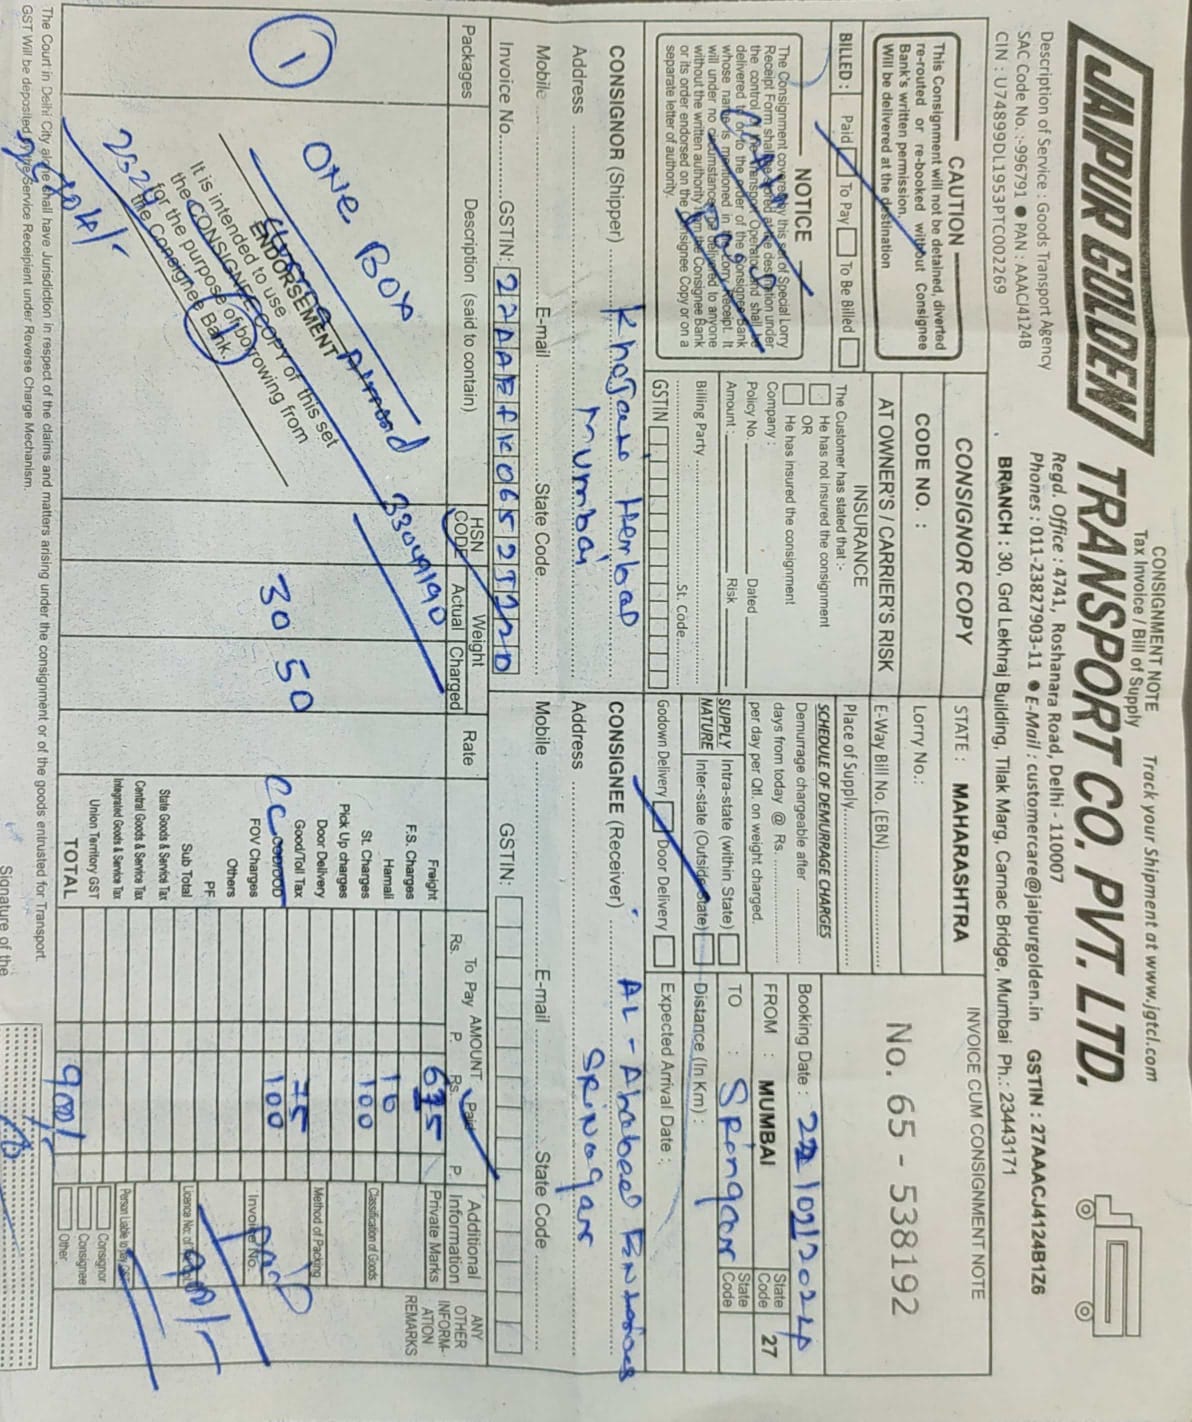 CONSIGNMENT NOTE
Tax Invoice / Bill of Supply
Track your Shipment at www.jgtcl.com
JAIPUR GOLDEN TRANSPORT CO. PVT. LTD.
Regd. Office : 4741, Roshanara Road, Delhi - 110007
Phones : 011-23827903-11 ● E-Mail : customercare@jaipurgolden.in GSTIN : 27AAACJ4124B1Z6
Description of Service : Goods Transport Agency
SAC Code No. :-996791 ● PAN : AAACJ4124B
CIN : U74899DL1953PTC002269
BRANCH : 30, Grd Lekhraj Building, Tilak Marg, Carnac Bridge, Mumbai Ph.: 23443171
CAUTION
This Consignment will not be detained, diverted
re-routed or re-booked without Consignee
Bank's written permission.
Will be delivered at the destination
BILLED : Paid To Pay To Be Billed
NOTICE
The Consignment covered by this set of Special Lorry
Receipt Form shall be stored at the destination under
the control of the Transport Operator and shall be
delivered to or to the order of the Consignee Bank
whose name is mentioned in the Lorry Receipt. It
will under no circumstances be delivered to anyone
without the written authority from the Consignee Bank
or its order endorsed on the Consignee Copy or on a
separate letter of authority.
CONSIGNOR COPY
CODE NO. :
AT OWNER'S / CARRIER'S RISK
INSURANCE
The Customer has stated that :-
He has not insured the consignment
OR
He has insured the consignment
Company :
Policy No. Dated
Amount : Risk
Billing Party
St. Code
GSTIN
STATE : MAHARASHTRA
Lorry No.:
E-Way Bill No. (EBN)
Place of Supply
SCHEDULE OF DEMURRAGE CHARGES
Demurrage chargeable after
days from today @ Rs.
per day per Qtl. on weight charged.
SUPPLY NATURE
Intra-state (within State)
Inter-state (Outside State)
Godown Delivery Door Delivery
INVOICE CUM CONSIGNMENT NOTE
No. 65 - 538192
Booking Date : 22/02/2024
FROM : MUMBAI State Code 27
TO : Sringar State Code
Distance (In Km) :
Expected Arrival Date :
CONSIGNOR (Shipper) Herbal
Address Mumbai
Mobile E-mail State Code
Invoice No. GSTIN:
CONSIGNEE (Receiver) AL-
Address Srinagar
Mobile E-mail State Code
GSTIN:
Packages Description (said to contain) HSN CODE Weight Actual Charged Rate
AMOUNT To Pay Rs. P. Paid Rs. P.
Additional Information
ANY OTHER INFORM-ATION REMARKS
1
ONE BOX
33049190
30 50
ENDORSEMENT
It is intended to use
the CONSIGNEE COPY of this set
for the purpose of borrowing from
the Consignee Bank.
Freight 675
F.S. Charges
Hamali 10
St. Charges 100
Pick Up charges
Door Delivery
Good/Toll Tax 75
CC 100
FOV Charges
Others
PF
Sub Total
State Goods & Service Tax
Central Goods & Service Tax
Integrated Goods & Service Tax
Union Territory GST
TOTAL 900/-
Private Marks
Classification of Goods
Method of Packing
Invoice No.
Paid
900/-
Person Liable to pay GST
Consignor
Consignee
Other
The Court in Delhi City alone shall have Jurisdiction in respect of the claims and matters arising under the consignment or of the goods entrusted for Transport.
GST Will be deposited by the Service Receipient under Reverse Charge Mechanism.
Signature of the